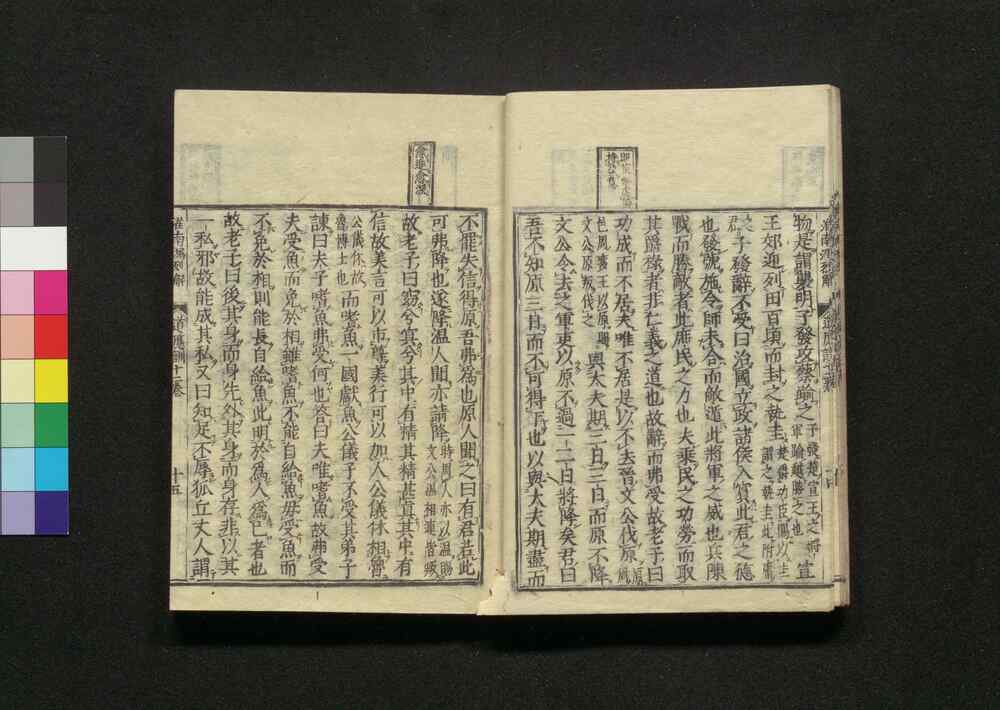 物是謂襲明子發攻蔡踰之子發楚宣王之將軍踰越勝之也宣
王郊迎列田百頃而封之執圭楚爵功臣賜以圭謂之執圭比附庸之
君子發辭不受曰治國立政諸侯入賓此君之德
也發號施令師未合而敵遁此將軍之威也兵陳
戰而勝敵者此庶民之力也夫乘民之功勞而取
其爵祿者非仁義之道也故辭而弗受故老子曰
功成而不居夫唯不居是以不去晉文公伐原原周
邑周襄王以原賜文公原叛伐之與大夫期三日三日而原不降
文公令去之軍吏以原不過一二日將降矣君曰
吾不知原三日而不可得下也以與大夫期盡而
不罷失信得原吾弗爲也原人聞之曰有君若此
可弗降也遂降溫人聞亦請降時周人亦以溫賜文公溫相連皆叛
故老子曰窈兮冥兮其中有精其精甚眞其中有
信故美言可以市尊美行可以加人公儀休相魯
公儀休故魯博士也而嗜魚一國獻魚公儀子不受其弟子
諫曰夫子嗜魚弗受何也答曰夫唯嗜魚故弗受
夫受魚而免於相雖嗜魚不能自給魚毋受魚而
不免於相則能長自給魚此明於爲人爲己者也
故老子曰後其身而身先外其身而身存非以其
一私邪故能成其私又曰知足不辱狐丘丈人謂
淮南鴻烈解
道應訓十二卷
十五